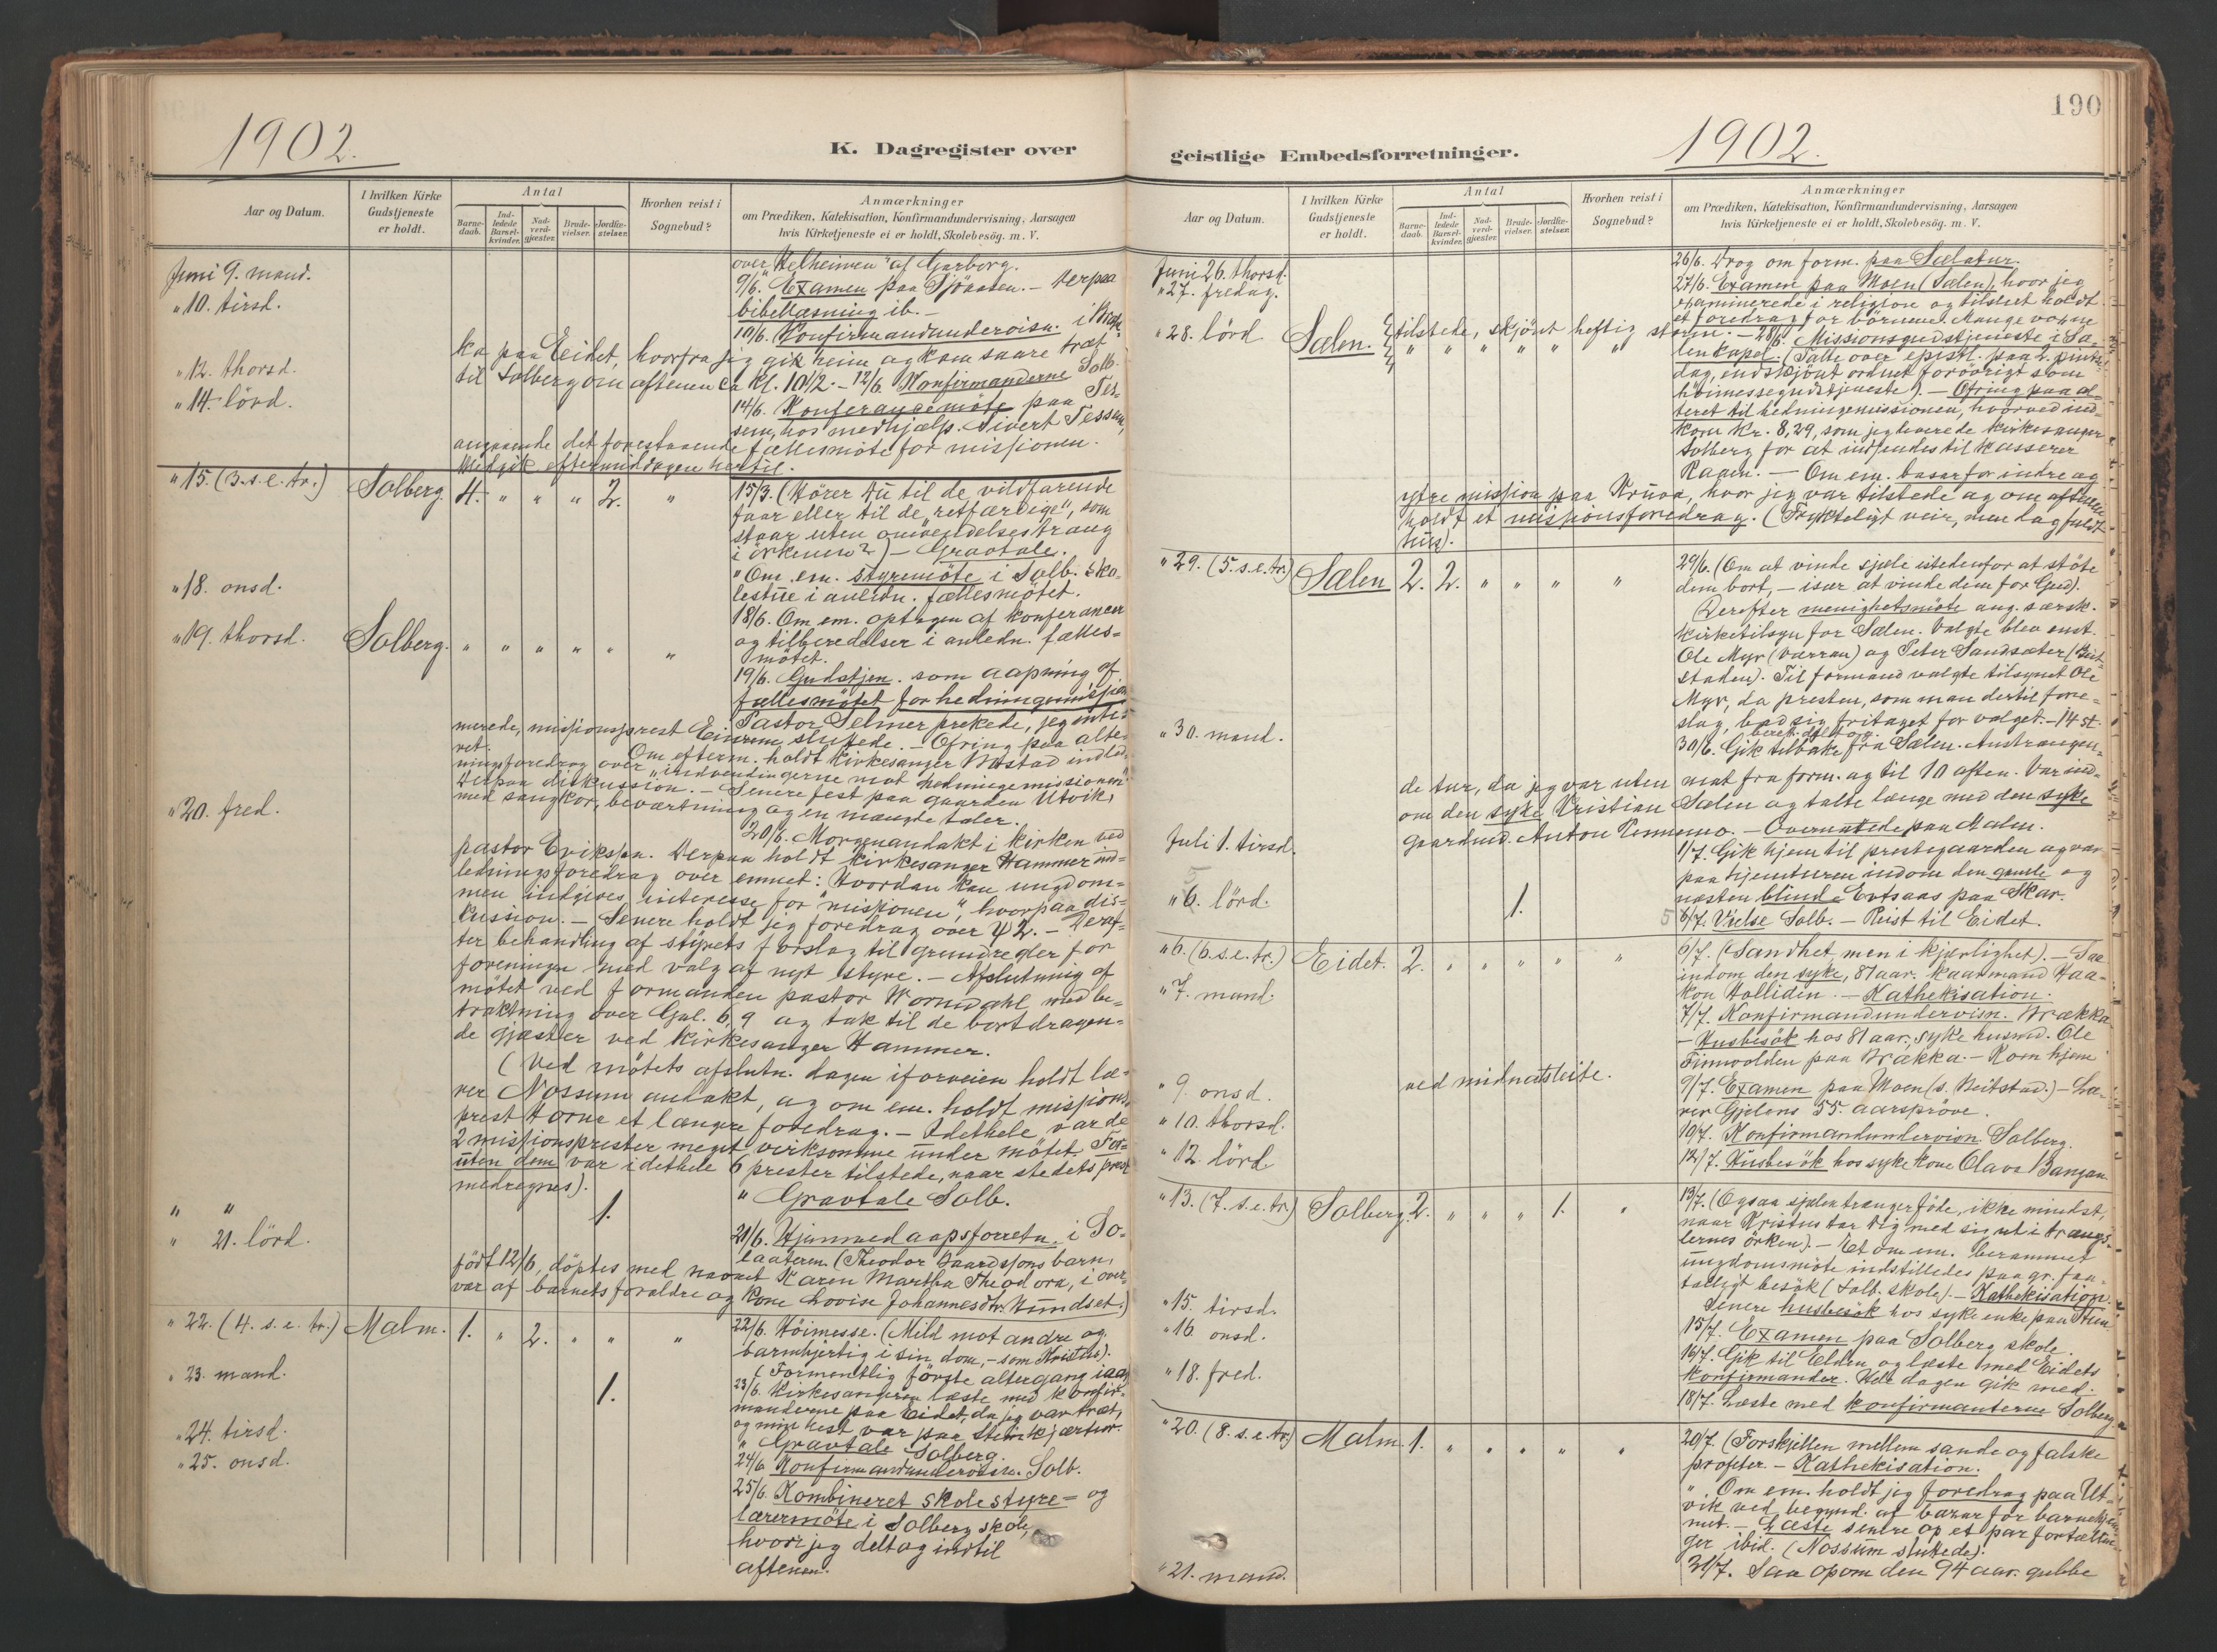 1902.
K. Dagregister over
Aar og Datum.
I hvilken Kirke Gudstjeneste er holdt.
Antal
Barnedaab.
Indledede Barselkvinder.
Nadverdgjester.
Brudevielser.
Jordfæstelser.
Hvorhen reist i Sognebud?
Anmærkninger
om Prædiken, Katekisation, Konfirmandundervisning, Aarsagen
hvis Kirketjeneste ei er holdt, Skolebesög. m. V.
Juni 9. mand.
over "Helheimen" af Garborg.
9/6. Examen paa . - Derpaa
" 10. tirsd.
bibellæsning ib. -
10/6. Konfirmandundervisn. i
ka paa Eidet, hvorfra jeg gik heim og kom saare træt
" 12. thorsd.
til Solberg om aftenen ca kl. 10 1/2. - 12/6 Konfirmanderne Solb.
" 14. lörd.
14/6. Konferansemöte paa Tes=
sem, hos medhjælp. Sivert Tessem,
angaaende det forestaaende fællesmöte for missionen.
Medgik eftermiddagen hertil.
" 15. (3. s. e. tr.) Solberg. 4. " " " 2. "
15/3. (Hörer du til de vildfarende
faar eller til de "retfærdige", som
staar uten omvendelsestrang
i örkenen?) - Gravtale.
" Om em. styremöte i Solb. sko=
" 18. onsd.
lestue i anledn. fællesmötet.
18/6. Om em. optagen af konferancer
" 19. thorsd. Solberg. " " " " " "
og tilberedelser i anledn. fælles=
mötet.
19/6. Gudstjen. som aapning af
fællesmötet for hedningemissjon
Pastor Selmer prekede, jeg
merede, missionsprest Einrem sluttede. - Ofring paa alte=
ret. Om efterm. holdt kirkesanger Bostad indled=
ningsforedrag over "indvendingerne mot hedningemissionen"
Derpaa diskussion. - Senere fest paa gaarden Utvik,
" 20. fred.
med sangkor, beværtning og en mængde taler.
20/6. Morgenandakt i kirken ved
pastor Eriksen. Derpaa holdt kirkesanger Hammer ind=
ledningsforedrag over emnet: Hvordan kan ungdom=
men indgives interesse for "missionen", hvorpaa dis=
kussion. - Senere holdt jeg foredrag over ψ 2. - Deref=
ter behandling af styrets forslag til grundregler for
foreningen med valg af nyt styre. - Afslutning af
mötet ved formanden pastor Worndahl med be=
traktning over Gal. 6,9 og tak til de bortdragen=
de gjæster ved kirkesanger Hammer.
(Ved mötets afslutn. dagen iforveien holdt læ=
rer Nossum andakt, og om em. holdt missions=
prest Horne et længere foredrag. - Idethele var de
2 missionsprester meget virksomme under mötet. For=
uten dem var idethele 6 prester tilstede, naar stedets prest
medregnes).
" " 1.
" Gravtale Solb.
" 21. lörd.
21/6. Hjemmedaapsforretn. i So=
laateren. (Theodor Baardssons barn,
född 12/6, döptes med navnet Karen Martha Theodora, i over=
vær af barnets foraldre og kone Lovise Johannesdtr. Hundset.)
" 22. (4. s. e. tr.) Malm. 1. " 2. " " "
22/6. Höimesse. (Mild mot andre og
barmhjertig i sin dom, - som Kristus).
(Formentlig förste altergang iaar)
" 23. mand. 1.
23/6. Kirkesangeren læste med konfir=
manderne paa Eidet, da jeg var træt,
og min hest var paa Steinkjærtur.
" 24. tirsd.
" Gravtale Solberg.
" 25. onsd.
24/6 Konfirmandundervisn. Solb.
25/6. Kombineret skolestyre= og
lærermöte i Solberg skole,
hvori jeg deltog indtil
aftenen.
190
1902.
geistlige Embedsforretninger.
Aar og Datum.
I hvilken Kirke Gudstjeneste er holdt.
Antal
Barnedaab.
Indledede Barselkvinder.
Nadverdgjester.
Brudevielser.
Jordfæstelser.
Hvorhen reist i Sognebud?
Anmærkninger
om Prædiken, Katekisation, Konfirmandundervisning, Aarsagen
hvis Kirketjeneste ei er holdt, Skolebesög. m. V.
Juni 26. thorsd.
26/6. Drog om form. paa Sælatur.
" 27. fredag.
27/6. Examen paa Moen (Sælen), hvor jeg
examinerede i religion og tilsluet holdt
et foredrag for börnene. Mange voxne
" 28. lörd Sælen. " " " " " "
tilstede, skjönt heftig storm. - 28/6. Missionsgudstjeneste i Sæ=
lenkapel. (Talte over epistl. paa 2. pintse=
dag, endskjönt ordnet forövrigt som
höimessegudstjeneste). - Ofring paa al=
teret til hedningemissionen, hvorved ind=
kom kr. 8,29, som jeg leverede kirkesanger
Solberg for at indsendes til kasserer
Raaen. - Om em. basar for indre og
ytre mission paa Kruva, hvor jeg var tilstede og om aftenen
holdt et missionsforedrag. (Frygteligt veir, men dog fuldt
hus).
" 29. (5. s. e. tr.) Sælen 2. 2. " " " "
29/6. (Om at vinde sjæle istedenfor at stöte
dem bort, - især at vinde dem for Gud).
Derefter menighetsmöte ang. særsk.
kirketilsyn for Sælen. Valgte blev enst.
Ole Myr (Værran) og Peter Sandsæter (Beit=
staden). Til formand valgte tilsynet Ole
Myr, da presten, som man dertil fore=
slog, bad sig fritaget for valget. - 14 st.
beret. deltog.
" 30. mand.
30/6. Gik tilbake fra Sælen. Anstrengen=
de tur, da jeg var uten mat fra form. og til 10 aften. Var ind=
om den syke Kristian Sælen og talte længe med den syke
gaardmd. Anton . - Overnatede paa Malm.
Juli 1. tirsd.
1/7. Gik hjem til prestegaarden og var
paa hjemturen indom den gamle og
næsten blinde Ertsaas paa Skar.
" 6. lörd. 1.
5
5/7. Vielse Solb. - Reist til Eidet.
" 6. (6. s. e. tr.) Eidet. 2. " " " " "
6/7. (Sandhet, men i kjærlighet). - Saa
indom den syke, 81 aar. kaarmand Haa=
kon Hollidin. - Kathekisation.
" 7. mand.
7/7. Konfirmandundervisn. Brækka
- Husbesök hos 81 aar. syke husmd. Ole
Finvolden paa Brækka. - Kom hjem
ved midnatsleite.
" 9. onsd.
9/7. Examen paa Moen (s. Beitstad.) - Læ=
rer Gjelens 55. aarspröve.
" 10. thorsd.
10/7. Konfirmandundervisn. Solberg.
" 12. lörd.
12/7. Husbesök hos syke kone Olava Bangan.
" 13. (7. s. e. tr.) Solberg. 2. " " " 1. "
13/7. (Ogsaa sjælen trænger föde, ikke mindst,
naar Kristus tar dig med sig ut i trængs=
lernes örken). - Et om em. berammet
ungdomsmöte indstilledes paa gr. faa=
talligt besök (Solb. skole). - Kathekisation.
Senere husbesök hos syke enke paa
" 15. tirsd.
15/7. Examen paa Solberg skole.
" 16. onsd.
16/7. Gik til Elden og læste med Eidets
konfirmander. Hele dagen gik med.
" 18. fred.
18/7. Læste med konfirmanterne Solberg.
" 20. (8. s. e. tr.) Malm. 1. " " " " "
20/7. (Forskjellen mellem sande og falske
profeter. - Kathekisation.
" Om em. holdt jeg foredrag paa Ut=
vik ved begynd. af basar for barnehjem=
met. - Læste senere op et par fortællin=
ger ibid. (Nossum sluttede).
" 21. mand.
21/7. Saa opom den 94 aar. gubbe